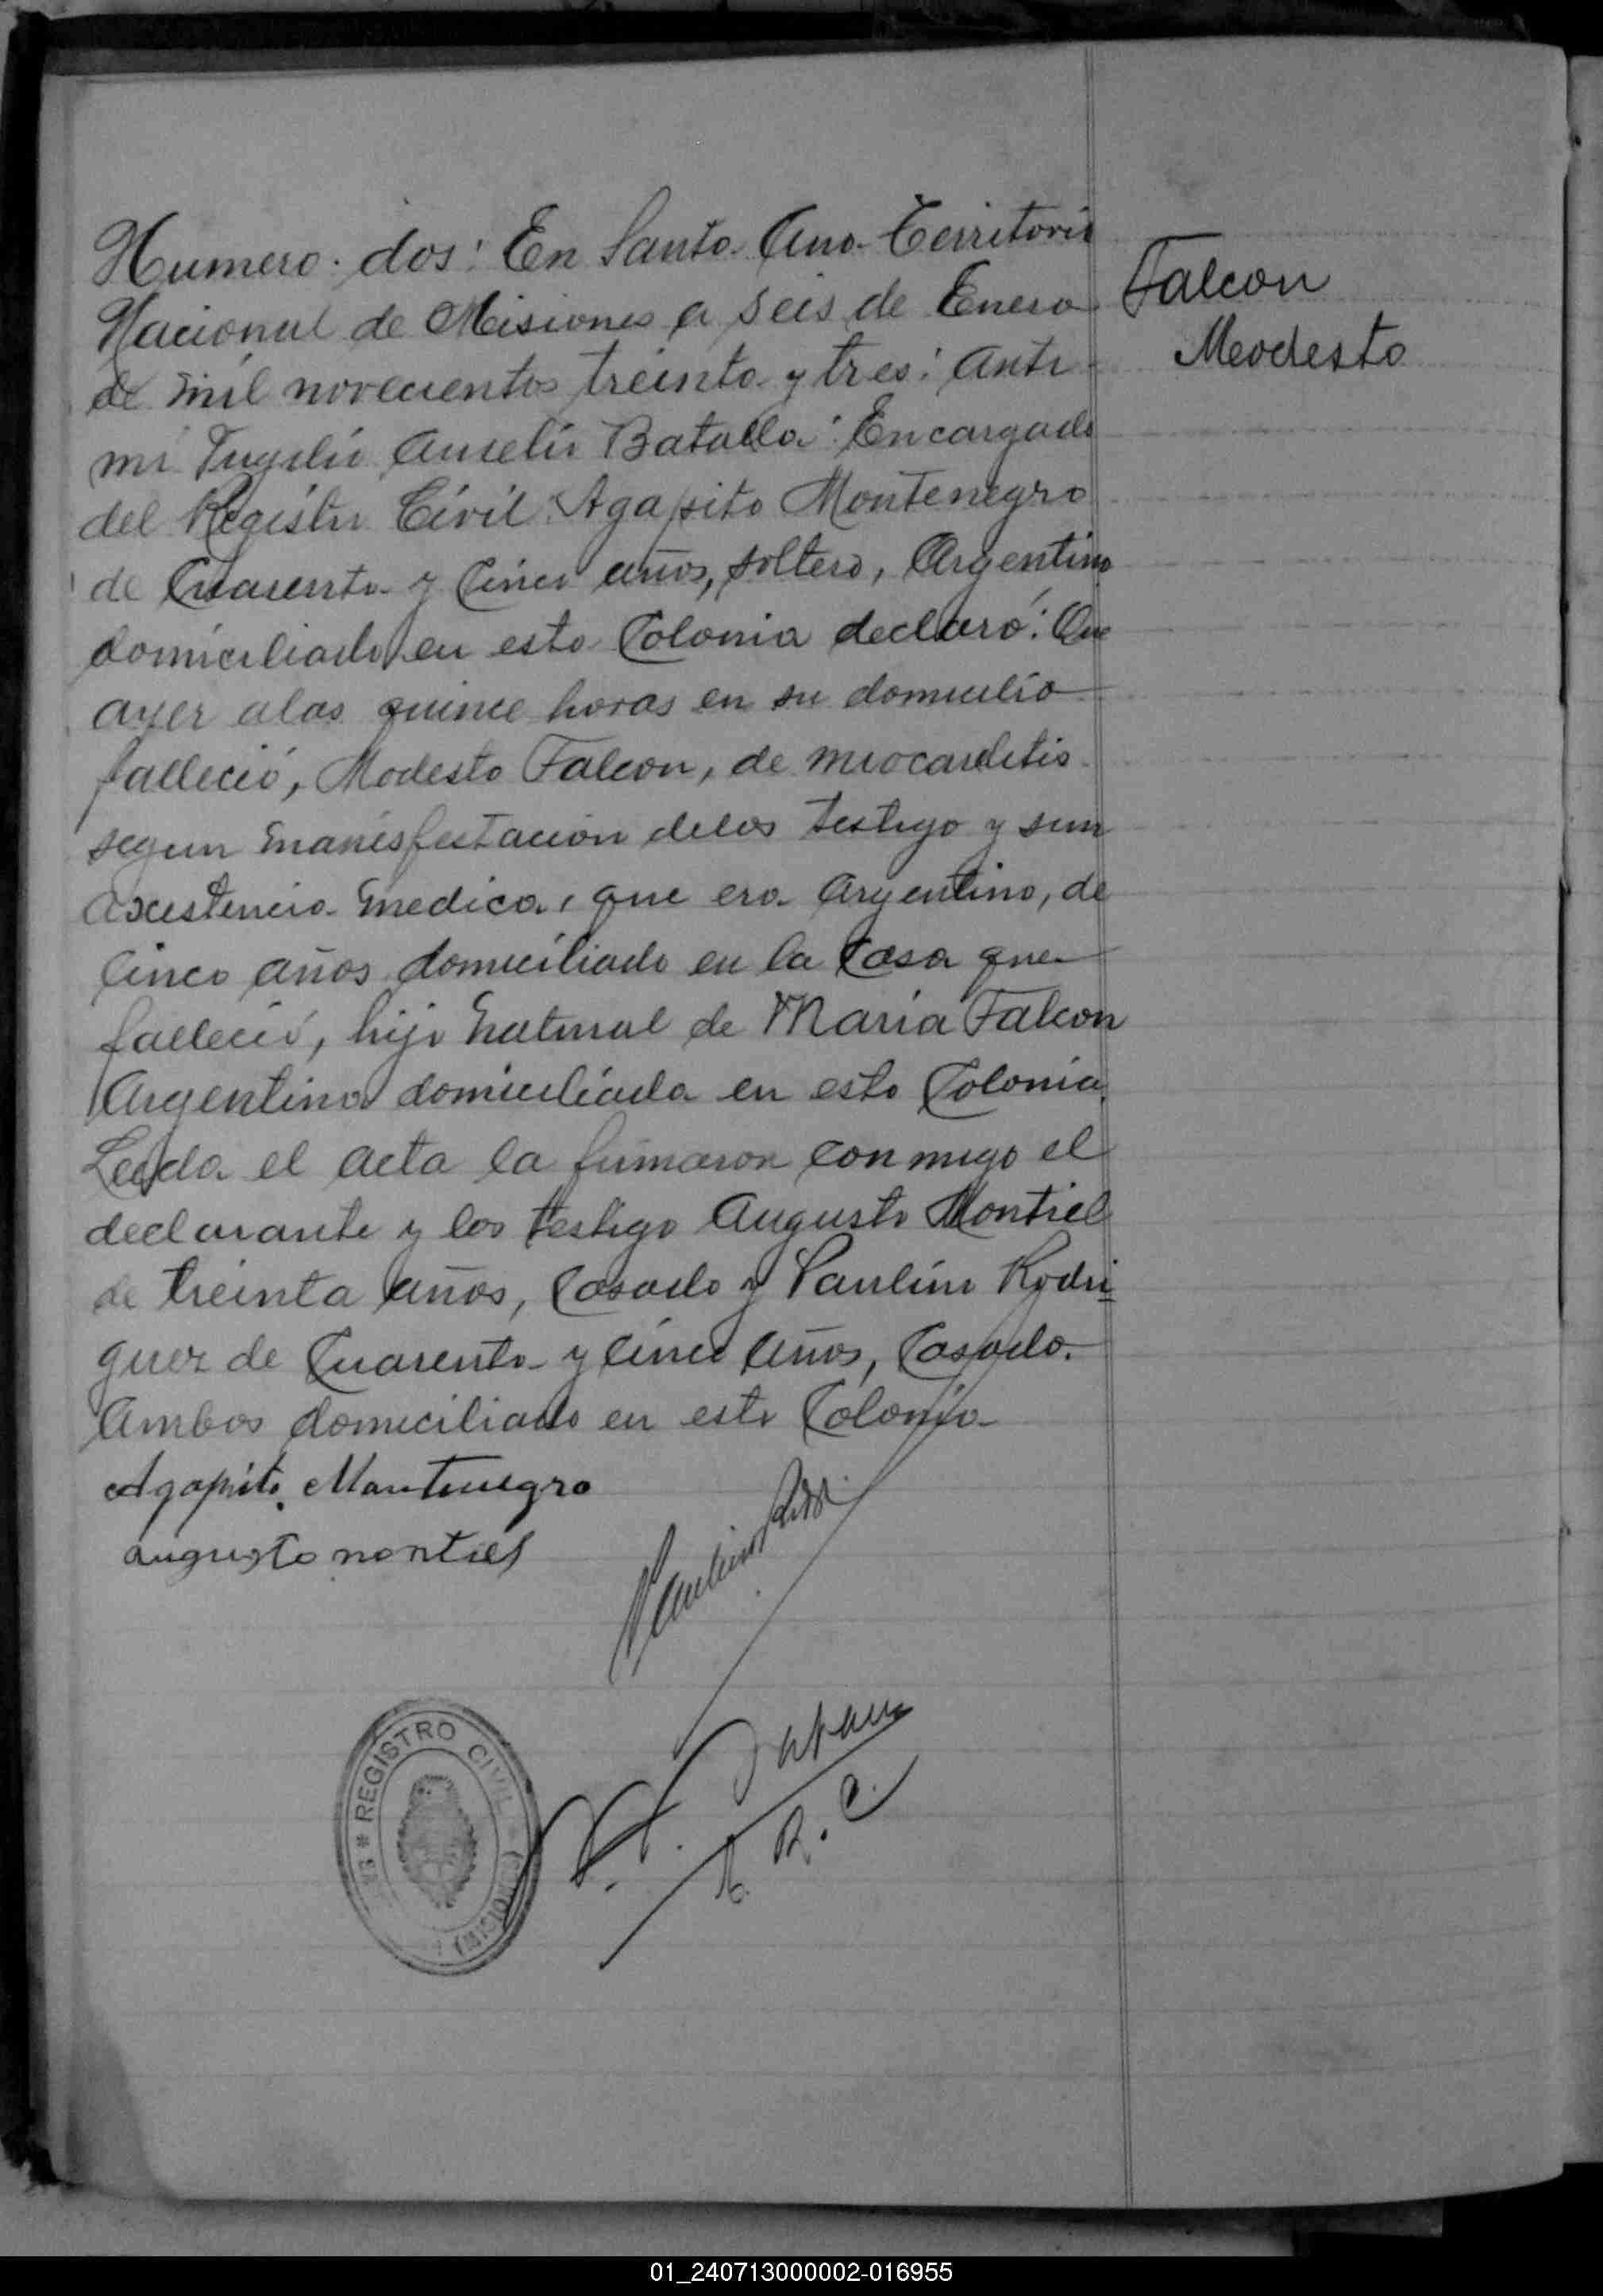 Numero dos: En Santa Ana Territorio
Nacional de Misiones a seis de Enero
de mil novecientos treinta y tres: Ante
mi Aurelio Batalla: Encargado
del Registro Civil: Agapito Montenegro
de Cuarenta y Cinco años, soltero, Argentino
domiciliado en esta Colonia declaró: Que
ayer alas quince horas en su domicilio
falleció, Modesto Falcon, de miocarditis
segun manisfestacion delos testigo y sin
axistencia medica, que era Argentino, de
Cinco años domiciliado en la Casa que
falleció, hijo natural de Maria Falcon
Argentina domiciliada en esta Colonia.
Leida el acta la firmaron conmigo el
declarante y los testigo Augusto Montiel
de treinta años, Casado y Paulino Rodri
guez de Cuarenta y cinco años, Casado.
Ambos domiciliado en esta Colonia
Agapito Montenegro
augusto montiel
Paulino
E. R. C.
REGISTRO CIVIL
Falcon
Meodesto
01_240713000002-016955